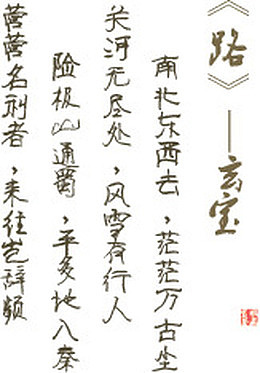 《路》——玄宝
南北东西去，茫茫万古尘
关河无尽处，风雪夜行人
险极山通蜀，平多地入秦
营营名利者，来往岂辞频